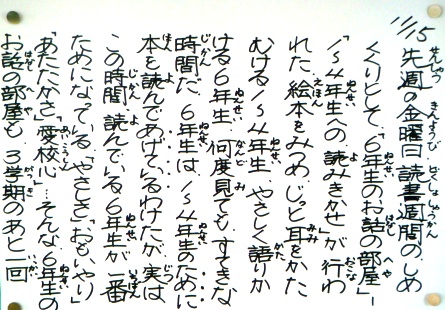 11/15
先週の金曜日 読書週間のしめ
くくりとして、「6年生のお話の部屋」―
1～4年生への読みきかせ」が行わ
れた。絵本をみつめ じっと耳をかた
むける1～4年生。やさしく語りか
ける6年生。何度見てもすてきな
時間だ。6年生は1～4年生のために
本を読んであげているわけだが、実は
この時間、読んでいる6年生が一番
ためになっている。「やさしさ」「おもいやり」
「あたたかさ」「愛校心」…そんな6年生の
お話の部屋も、3学期のあと一回